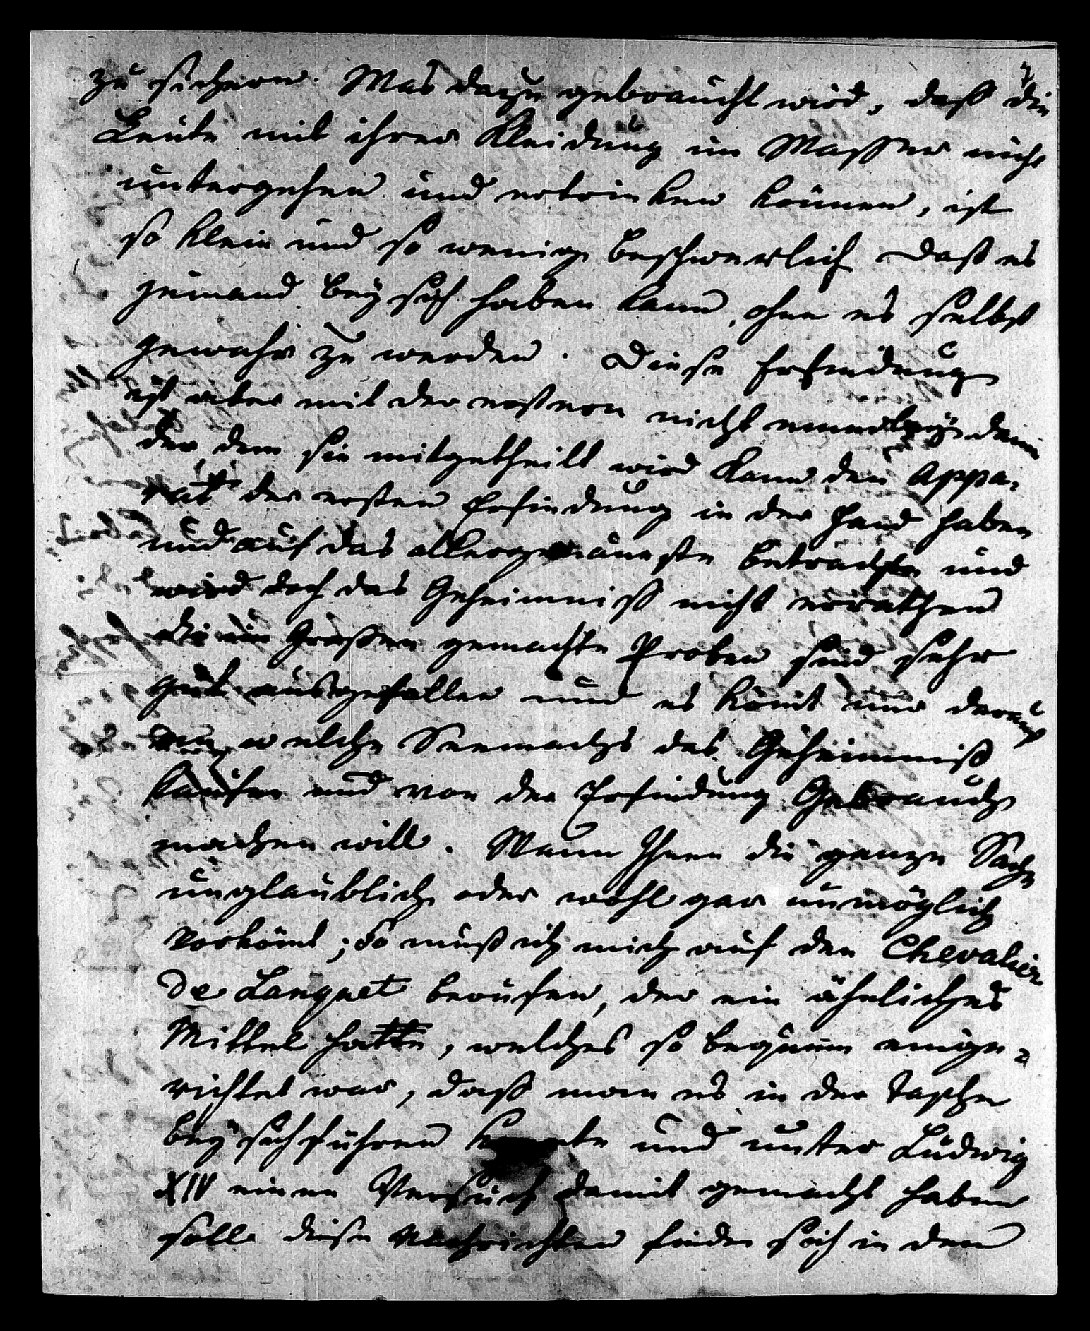 zu sichern. Was dazu gebraucht wird, daß die
Leute mit ihrer Kleidung im Wasser nicht
untergehen und ertrinken können, ist
so klein und so wenig beschwerlich daß es
jemand bey sich haben kann, ohne es selbst
gewahr zu werden. Diese Erfindung
ist aber mit der erstern nicht denn
der dem sie mitgetheilt wird kann den Appa-
rat der ersten Erfindung in der Hand haben
und auf das allergenaueste betrachten und
wird doch das Geheimniß nicht errathen
die im Großen gemachte Proben sind sehr
gut ausgefallen und es kömt nur darauf
an, welche Seemacht das Geheimniß
kaufen und von der Erfindung Gebrauch
machen will. Wann Ihnen die ganze Sache
unglaublich oder wohl gar unmöglich
vorkömt; so muß ich mich auf den Chevalier
de Langnet berufen, der ein ähnliches
Mittel hatte, welches so bequem einge-
richtet war, daß man es in der Tasche
bey sich führen konnte und unter Ludwig
XIV einen Versuch damit gemacht haben
soll. diese Nachrichten finden sich in den